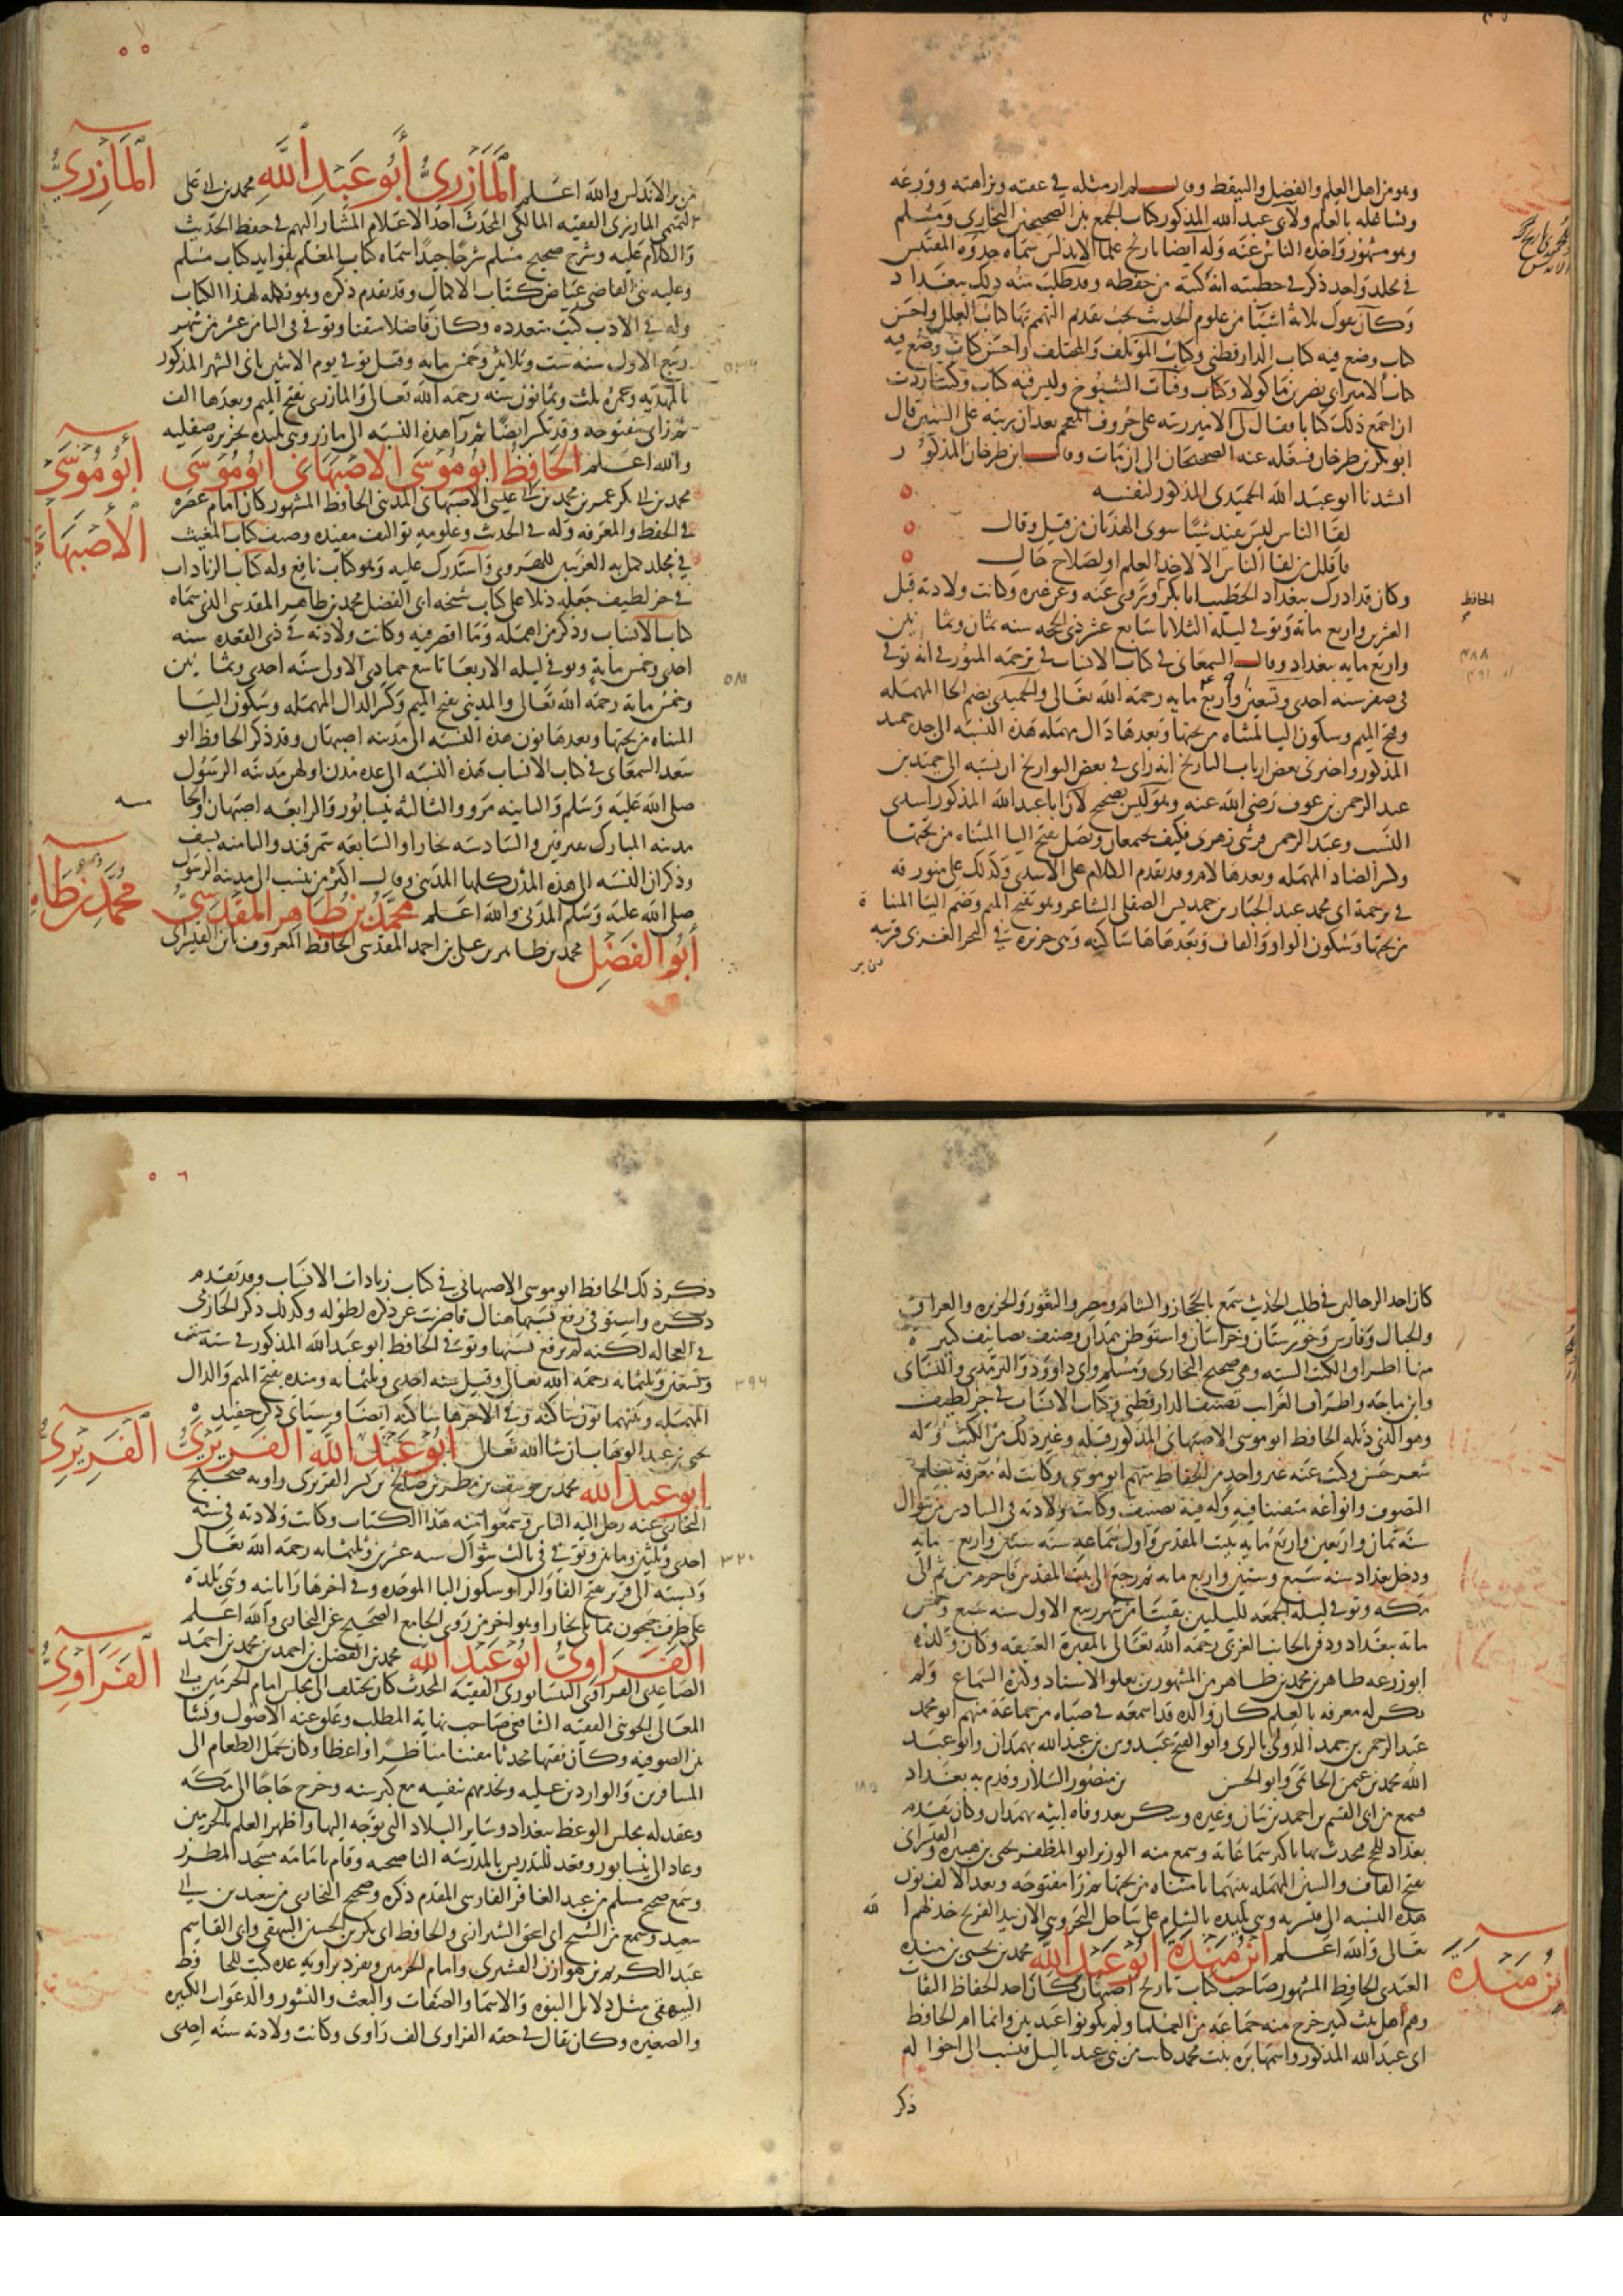 وهو من اهل العلم والفضل والتيقظ وقال لم ار مثله في عفته ونزاهته وورعه
وتشاغله بالعلم ولابي عبد الله المذكور كتاب الجمع بين الصحيحين البخاري ومسلم
وهو مشهور واخذه الناس عنه وله ايضا تاريخ علما الاندلس سماه جذوة المقتبس
في مجلد واحد ذكر في خطبته انه كتبه من حفظه وقد طلب منه ذلك ببغداد
وكان يقول ثلاثة اشيا من علوم الحديث يجب تقديم التهمم بها كتاب العلل واحسن
كتاب وضع فيه كتاب الدارقطني وكتاب المؤتلف والمختلف واحسن كتاب وضع فيه
كتاب الامير ابي نصر بن ماكولا وكتاب وفيات الشيوخ وليس فيه كتاب وكنت اردت
ان اجمع ذلك كتابا فقال لي الامير رتبه على حروف المعجم بعد ان ترتبه على السنين قال
ابو بكر بن طرخان فشغله عنه الصحيحان الى ان مات وقال ابن طرخان المذكور
انشدنا ابو عبد الله الحميدي المذكور لنفسه
لقا الناس ليس يفيد شيا سوى الهذيان من قيل وقال
فاقلل من لقا الناس الا لاخذ العلم او لصلاح حال
وكان قد ادرك ببغداد الخطيب ابا بكر وروى عنه وعن غيره وكانت ولادته قبل
الحافظ
العشرين واربع مائة وتوفي ليلة الثلاثا سابع عشر ذي الحجه سنه ثمان وثمانين
واربع مايه ببغداد وقال السمعاني في كتاب الانساب في ترجمة الميورقي انه توفي
٤٨٨
٤٩١
في صفر سنه احدى وتسعين واربع مايه رحمه الله تعالى والحميدي بضم الحا المهمله
وفتح الميم وسكون اليا المثناه من تحتها وبعدها دال مهمله هذه النسبه الى جده حميد
المذكور واخبرني بعض ارباب التاريخ انه راى في بعض التواريخ ان نسبه الى حميد بن
عبد الرحمن بن عوف رضي الله عنه وهو ليس بصحيح لان ابا عبد الله المذكور اسدي
النسب وعبد الرحمن قرشي زهري فكيف يجتمعان ويصل بفتح اليا المثناه من تحتها
وكسر الصاد المهمله وبعدها لام وقد تقدم الكلام على الاسدي وكذلك على ميورقه
في ترجمة ابي محمد عبد الجبار بن حمديس الصقلي الشاعر وهو بفتح الميم وضم اليا المثناة
من تحتها وسكون الواو والقاف وبعدها ها ساكنه وهي جزيره في البحر الغربي قريبه
من بر
٥٥
من بر الاندلس والله اعلم المازري أبو عبد الله محمد بن ابي علي
المازري
التميمي المازري الفقيه المالكي المحدث احد الاعلام المشار اليهم في حفظ الحديث
والكلام عليه وشرح صحيح مسلم شرحا جيدا سماه كتاب المعلم بفوايد كتاب مسلم
وعليه بنى القاضي عياض كتاب الاكمال وقد تقدم ذكره وهو تكمله لهذا الكتاب
وله في الادب كتب متعدده وكان فاضلا متقنا وتوفي في الثامن عشر من شهر
ربيع الاول سنه ست وثلاثين وخمس مايه وقيل توفي يوم الاثنين ثاني الشهر المذكور
٥٣٦
بالمهديه وعمره ثلث وثمانون سنه رحمه الله تعالى والمازري بفتح الميم وبعدها الف
ثم زاي مفتوحه وقد تكسر ايضا ثم را هذه النسبه الى مازر وهي بليده بجزيره صقليه
والله اعلم الحافظ ابو موسى الاصبهاني ابو موسى
أبو موسى الأصبهاني
محمد بن ابي بكر عمر بن محمد بن ابي عيسى الاصبهاني المديني الحافظ المشهور كان امام عصره
في الحفظ والمعرفه وله في الحديث وعلومه تواليف مفيده وصنف كتاب المغيث
في مجلد كمل به الغريبين للهروي واستدرك عليه وهو كتاب نافع وله كتاب الزيادات
في جز لطيف جعله ذيلا على كتاب شيخه ابي الفضل محمد بن طاهر المقدسي الذي سماه
كتاب الانساب وذكر من اهمله وما اقصر فيه وكانت ولادته في ذي القعده سنه
احدى وخمس مايه وتوفي ليله الاربعا تاسع جمادى الاولى سنه احدى وثمانين
٥٨١
وخمس مائه رحمه الله تعالى والمديني بفتح الميم وكسر الدال المهمله وسكون اليا
المثناه من تحتها وبعدها نون هذه النسبه الى مدينه اصبهان وقد ذكر الحافظ ابو
سعد السمعاني في كتاب الانساب هذه النسبه الى عده مدن اولهن مدينه الرسول
صلى الله عليه وسلم والثانيه مرو والثالثة نيسابور والرابعه اصبهان والخامسه
مدينه المبارك بقزوين والسادسه بخارا والسابعه سمرقند والثامنه بنسف
وذكر ان النسبه الى هذه المدن كلها المديني وقال اكثر من ينسب الى مدينه الرسول
صلى الله عليه وسلم المدني والله اعلم محمد بن طاهر المقدسي
محمد بن طاهر
أبو الفضل محمد بن طاهر بن علي بن احمد المقدسي الحافظ المعروف بابن القيسراني
كان احد الرحالين في طلب الحديث سمع بالحجاز والشام ومصر والثغور والجزيره والعراق
والجبال وفارس وخورستان وخراسان واستوطن همدان وصنف تصانيف كثيرة
منها اطراف الكتب السته وهي صحيح البخاري ومسلم وابي داوود والترمذي والنسائي
وابن ماجه واطراف الغرايب تصنيف الدارقطني وكتاب الانساب في جز لطيف
وهو الذي ذيله الحافظ ابو موسى الاصبهاني المذكور قبله وغير ذلك من الكتب وله
شعر حسن وكتب عنه غير واحد من الحفاظ منهم ابو موسى وكانت له معرفه بعلم
التصوف وانواعه متفننا فيه وله فيه تصنيف وكانت ولادته في السادس من شوال
سنه ثمان واربعين واربع مايه ببيت المقدس واول سماعه سنه ستين واربع مايه
ودخل بغداد سنه سبع وستين واربع مايه ثم رجع الى بيت المقدس فاحرم من ثم الى
مكه وتوفي ليله الجمعه لليلتين بقيتا من شهر ربيع الاول سنه سبع وخمس
مايه ببغداد ودفن بالجانب الغربي رحمه الله تعالى بالمقبرة العتيقه وكان ولده
ابو زرعه طاهر بن محمد بن طاهر من المشهورين بعلو الاسناد وكثره السماع ولم
يكن له معرفه بالعلم كان والده قد اسمعه في صباه من جماعة منهم ابو محمد
عبد الرحمن بن حمد الدوني بالري وابو الفتح عبدوس بن عبد الله بهمدان وابو عبد
الله محمد بن عثمن الحاتمي وابو الحسن بن منصور السلار وقدم به بغداد
فسمع من ابي القسم بن احمد بن بيان وغيره وسكن بعد وفاه ابيه بهمدان وكان يقدم
بغداد للحج فحدث بها باكثر سماعاته وسمع منه الوزير ابو المظفر يحيى بن هبيره والقيسراني
بفتح القاف والسين المهمله بينهما يا مثناه من تحتها ثم را مفتوحه وبعد الالف نون
هذه النسبه الى قيسريه وهي بليده بالشام على ساحل البحر وهي الان بيد الفرنج خذلهم الله
تعالى والله اعلم ابن منده ابو عبد الله محمد بن يحيى بن منده
ابن منده
العبدي الحافظ المشهور صاحب كتاب تاريخ اصبهان كان احد الحفاظ الثقات
وهم اهل بيت كبير خرج منه جماعه من العلما ولم يكونوا عبديين وانما ام الحافظ
ابي عبد الله المذكور واسمها بره بنت محمد كانت من بني عبد ياليل فنسب الى اخواله
ذكر
٥٦
ذكر ذلك الحافظ ابو موسى الاصبهاني في كتاب زيادات الانساب وقد تقدم
ذكره واستوفى رفع نسبها هناك فاضربت عن ذكره لطوله وكذلك ذكر الحازمي
في العجاله لكنه لم يرفع نسبها وتوفي الحافظ ابو عبد الله المذكور في سنه ست
وتسعين وثلثمايه رحمه الله تعالى وقيل سنه احدى وثلثمايه ومنده بفتح الميم والدال
٣٩٦
المهمله وبينهما نون ساكنه وفي الاخر ها ساكنه ايضا وسياتي ذكر حفيده
يحيى بن عبد الوهاب ان شا الله تعالى ابو عبد الله الفربري
الفربري
ابو عبد الله محمد بن يوسف بن مطر بن صالح بن بشر الفربري راويه صحيح
البخاري عنه رحل اليه الناس وسمعوا منه هذا الكتاب وكانت ولادته في سنه
احدى وثلثين ومايتين وتوفي في ثالث شوال سنه عشرين وثلثمايه رحمه الله تعالى
٣٢٠
ونسبته الى فربر بفتح الفا والرا وسكون البا الموحده وفي اخرها را ثانيه وهي بلدة
على طرف جيحون مما يلي بخارا وهو اخر من روى الجامع الصحيح عن البخاري والله اعلم
الفراوي ابو عبد الله محمد بن الفضل بن احمد بن محمد بن احمد
الفراوي
الصاعدي الفراوي النيسابوري الفقيه المحدث كان يختلف الى مجلس امام الحرمين ابي
المعالي الجويني الفقيه الشافعي صاحب نهاية المطلب وعلق عنه الاصول ونشا
بين الصوفيه وكان فقيها محدثا مفتيا مناظرا واعظا وكان يحمل الطعام الى
المسافرين والواردين عليه ويخدمهم بنفسه مع كبر سنه وخرج حاجا الى مكه
وعقد له مجلس الوعظ ببغداد وساير البلاد التي توجه اليها واظهر العلم بالحرمين
وعاد الى نيسابور وقعد للتدريس بالمدرسه الناصحيه وقام بامامه مسجد المطرز
وسمع صحيح مسلم من عبد الغافر الفارسي المقدم ذكره وصحيح البخاري من سعيد بن ابي
سعيد وسمع من الشيخ ابي اسحق الشيرازي والحافظ ابي بكر بن الحسين البيهقي وابي القاسم
عبد الكريم بن هوازن القشيري وامام الحرمين وتفرد بروايه عده كتب للحافظ
البيهقي مثل دلايل النبوه والاسما والصفات والبعث والنشور والدعوات الكبير
والصغير وكان يقال في حقه الفراوي الف راوي وكانت ولادته سنه احدى